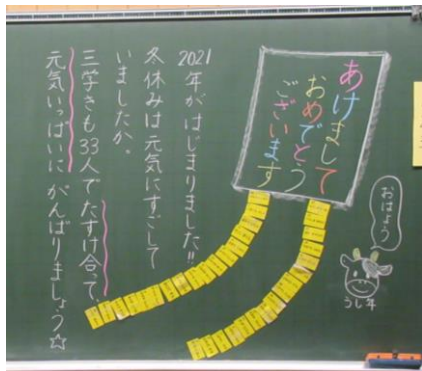 あけまして
おめでとう
ございます
おはよう
うし年
2021年がはじまりました!!
冬休みは元気にすごして
いましたか。
三学きも33人でたすけ合って、
元気いっぱいにがんばりましょう☆